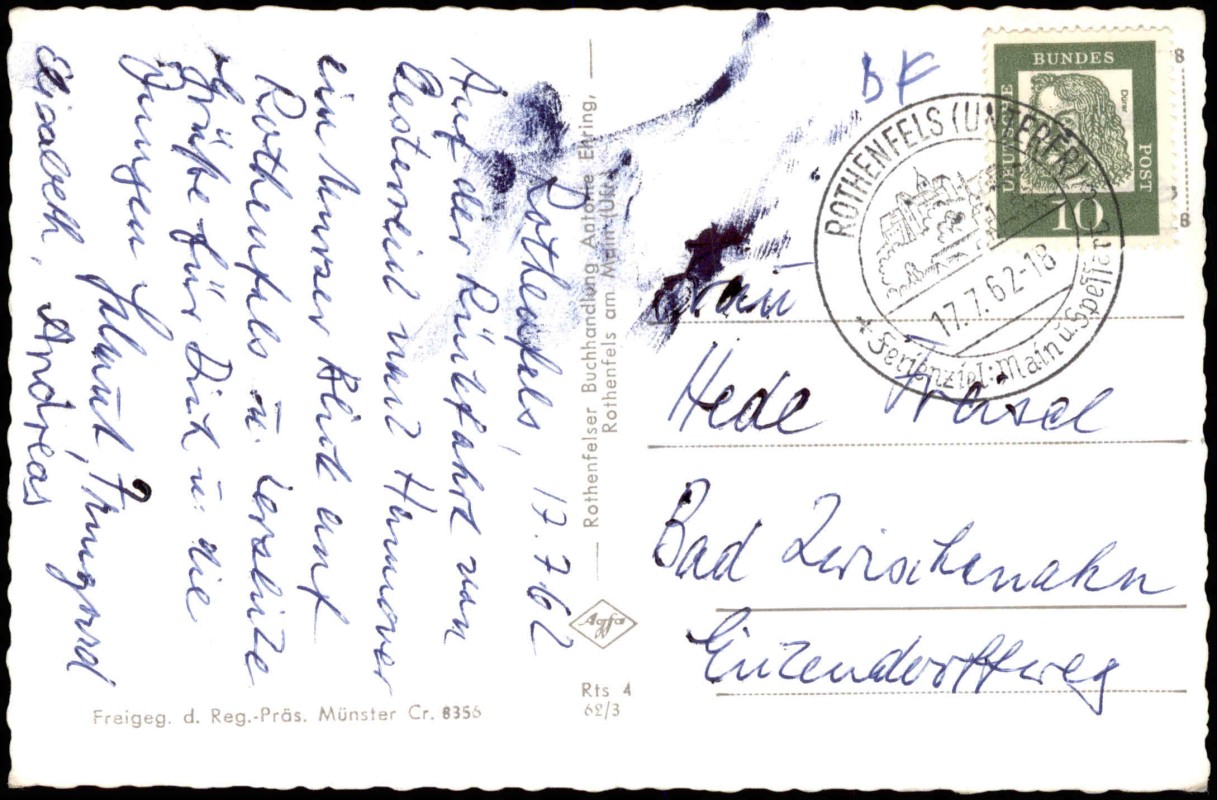 Rothenfels, 17.7.62
Auf der Rückfahrt von
Oesterreich nach Hannover
ein kurzer Blick auf
Rothenfels u. herzliche
Grüße für Dich u. die
Jungen Helmut, Irmgard
Elisabeth, Andreas
Freigeg. d. Reg.-Präs. Münster Cr. 8356
Rothenfelser Buchhandlung Antonie Ehring,
Rothenfels am Main (Ufr.)
Agfa
Rts 4
62/3
BF
DEUTSCHE
BUNDES
POST
Dürer
10
ROTHENFELS (UNTERFR)
17.7.62-18
Ferienziel: Main u. Spessart
Frau
Hede
Bad Zwischenahn